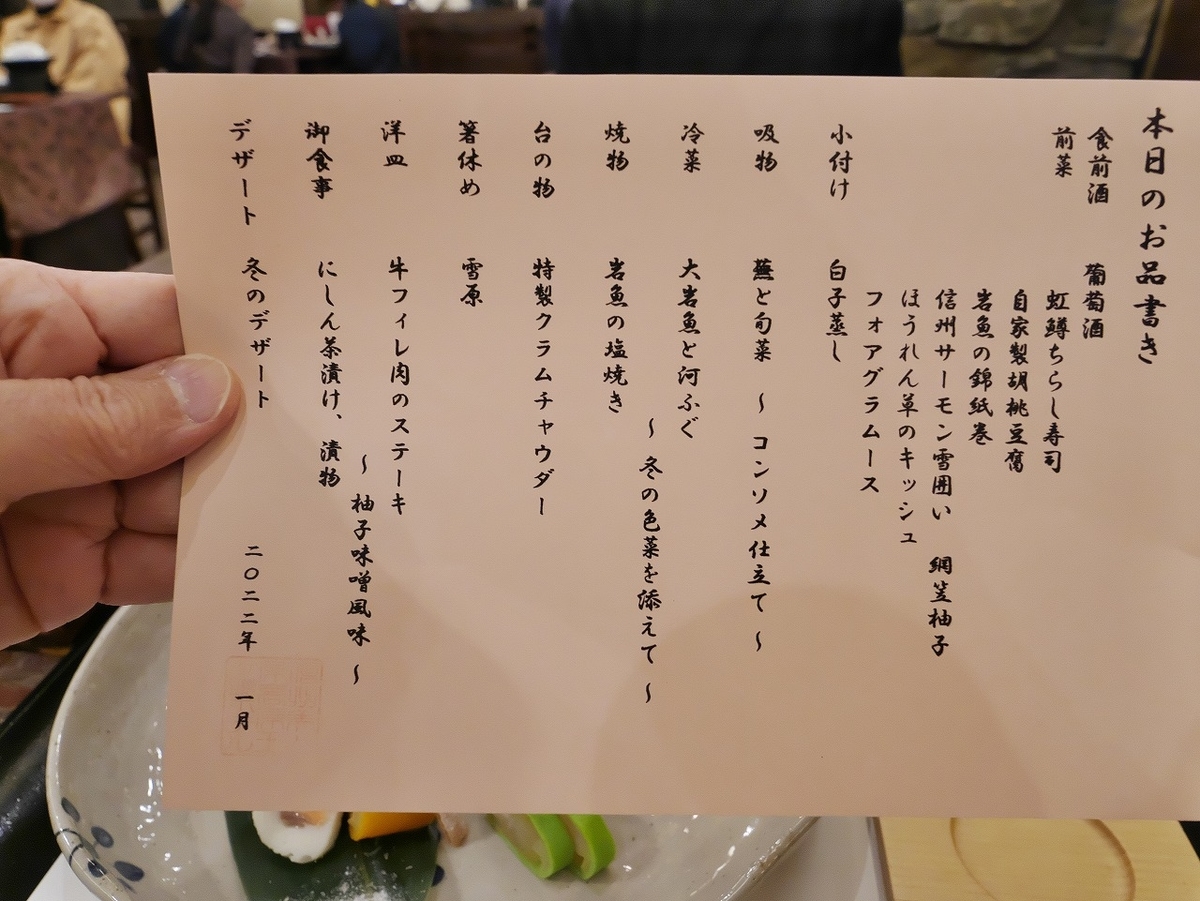 本日のお品書き
食前酒 葡萄酒
前菜 虹鱒ちらし寿司
自家製胡桃豆腐
岩魚の錦紙巻
信州サーモン雪囲い 網笠柚子
ほうれん草のキッシュ
フォアグラムース
小付け 白子蒸し
吸物 蕪と旬菜 ～ コンソメ仕立て ～
冷菜 大岩魚と河ふぐ
～ 冬の色菜を添えて ～
焼物 岩魚の塩焼き
台の物 特製クラムチャウダー
箸休め 雪原
洋皿 牛フィレ肉のステーキ
～ 柚子味噌風味 ～
御食事 にしん茶漬け、漬物
デザート 冬のデザート
二〇二二年 一月